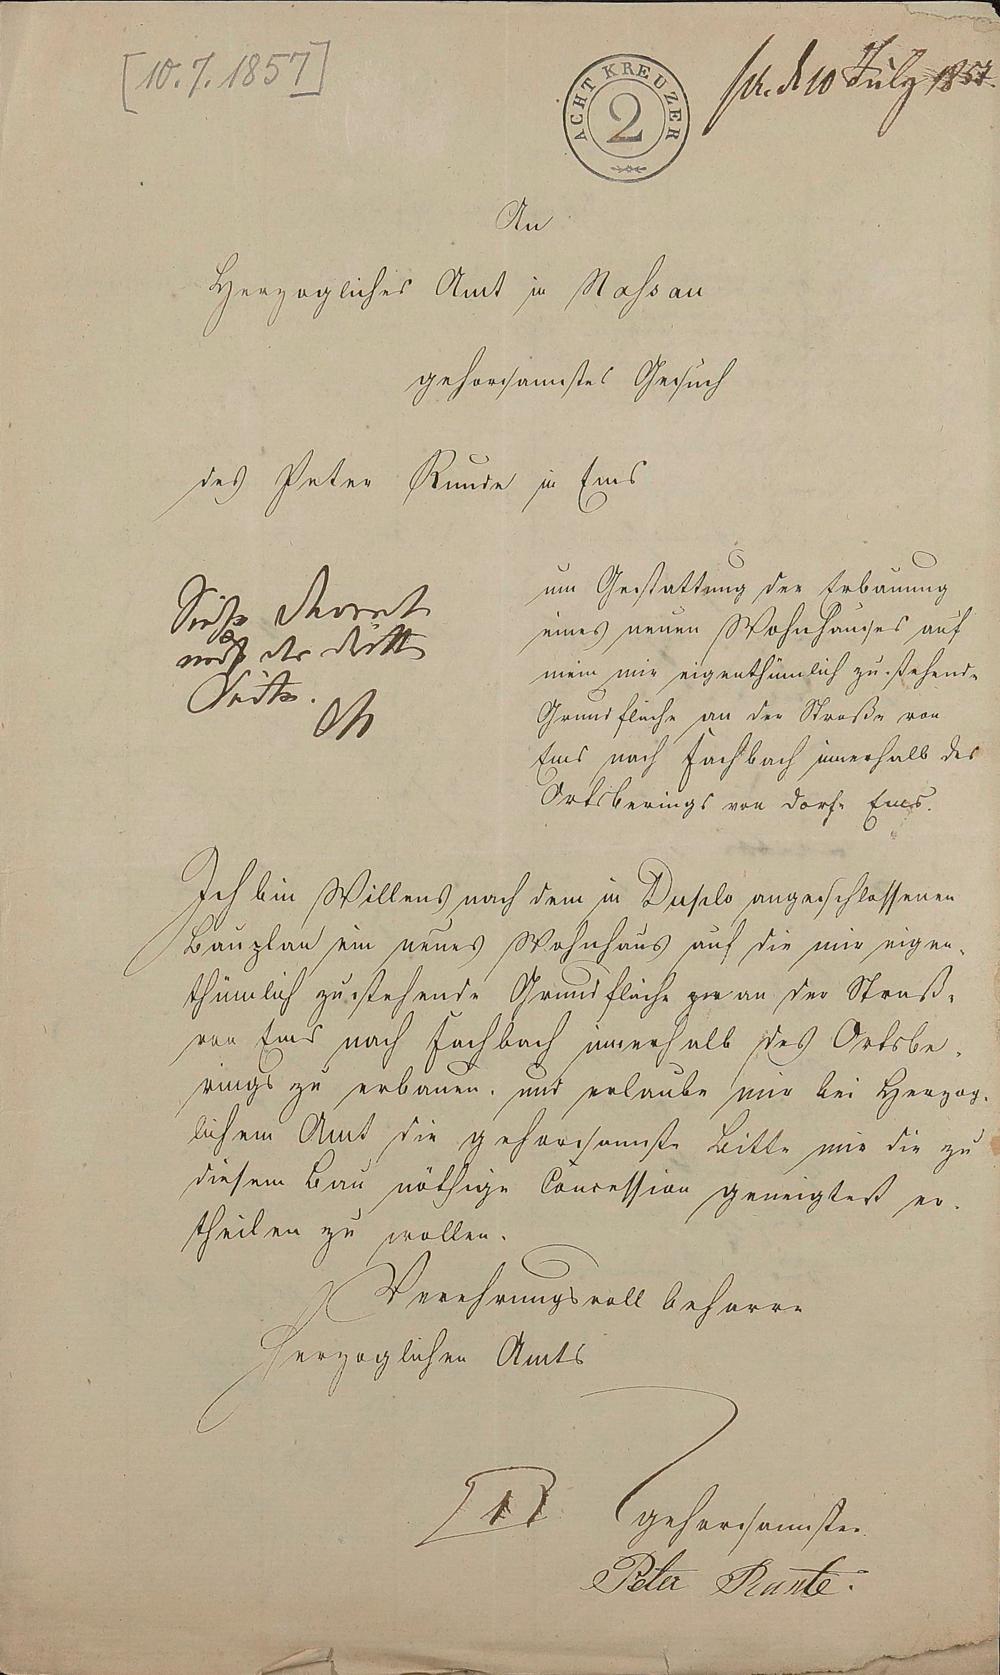 [10.7.1857]
ACHT KREUZER
2
10 July 1857.
An
Herzogliches Amt in Nassau
gehorsamstes Gesuch
des Peter in Ems
um Gestattung der Erbauung
eines neuen Wohnhauses auf
mein mir eigenthümlich zustehende
Grundfläche an der Straße von
Ems nach Fachbach innerhalb des
Ortsberings von Dorf Ems.
Siehe
Seite.
Ich bin Willens nach dem in Duplo angeschlossenen
Bauplan ein neues Wohnhaus auf die mir eigen-
thümlich zustehende Grundfläche an der Straße
von Ems nach Fachbach innerhalb des Ortsbe-
rings zu erbauen. und erlaube mir bei Herzog-
lichem Amt die gehorsamste Bitte mir die zu
diesem Bau nöthige Concession geneigtest er-
theilen zu wollen.
Verehrungsvoll beharre
Herzoglichen Amts
[1]
gehorsamster
Peter